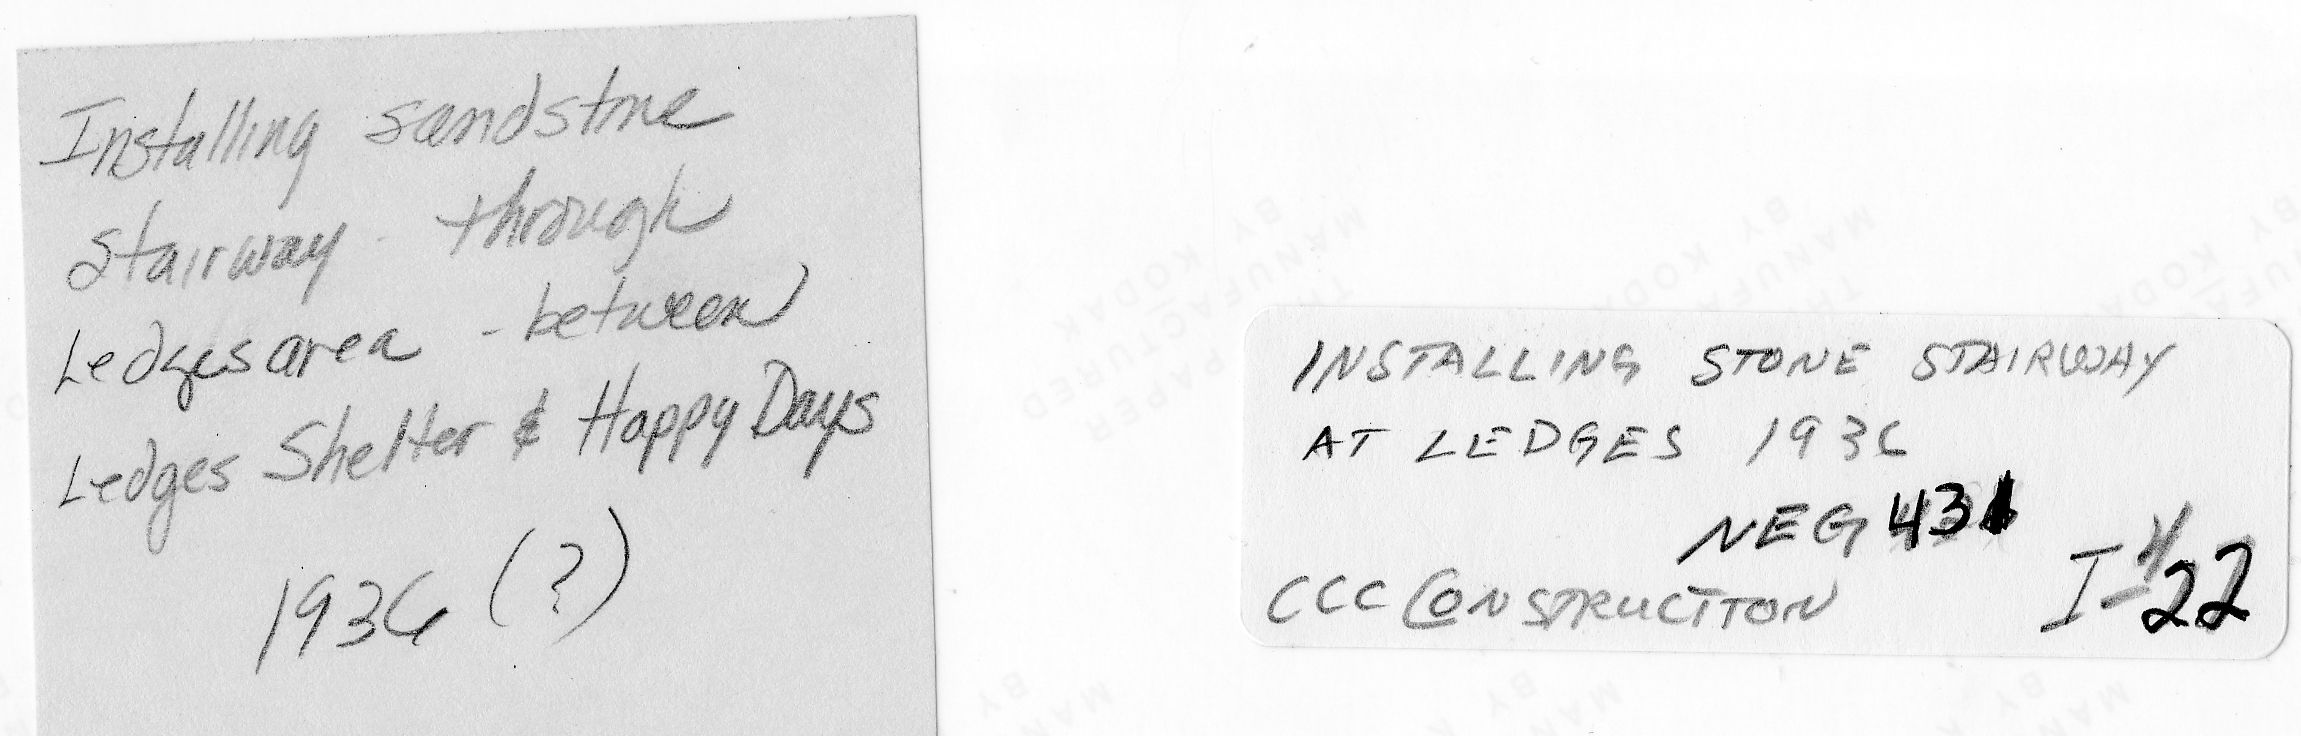 Installing sandstone
Stairway - through
Ledges area - between
Ledges Shelter & Happy Days
1936 (?)
INSTALLING STONE STAIRWAY
AT LEDGES 1936
NEG 431
CCC CONSTRUCTION
I-22
THIS PAPER
MANUFACTURED
BY KODAK